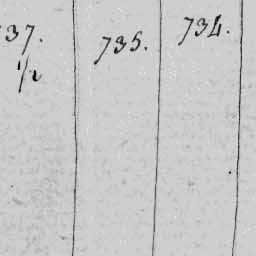 37. 735. 734.
1/2